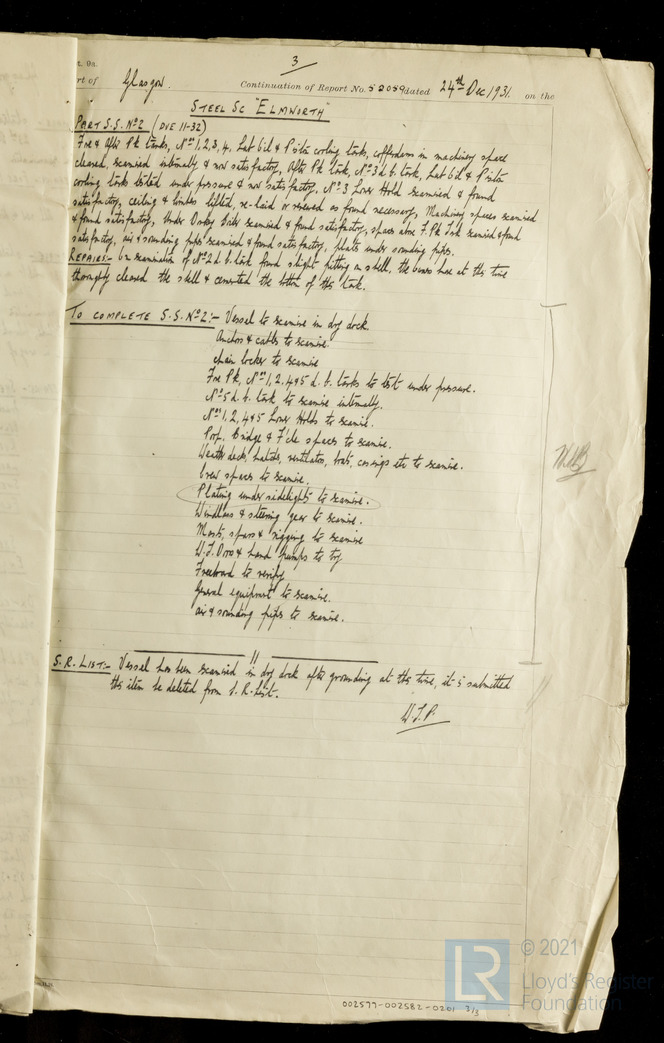 3
t. 9a.
rt of Glasgow. Continuation of Report No. 52089 dated 24th Dec 1931. on the
STEEL SC "ELMWORTH"
PART S.S. No 2 (DUE 11-32)
Fore & After Pk tanks, Nos 1, 2, 3, 4, Lub Oil & Piston cooling tanks, cofferdams in machinery space
cleaned, examined internally & now satisfactory, After Pk tank, No 3 d. b. tank, Lub Oil & Piston
cooling tanks tested under pressure & now satisfactory. No 3 Lower Hold examined & found
satisfactory, ceiling & limbers lifted, re-laid or renewed as found necessary, Machinery spaces examined
& found satisfactory, Under Donkey boiler examined & found satisfactory, space above F. Pk Tank examined & found
satisfactory, air & sounding pipes examined & found satisfactory, plates under sounding pipes.
REPAIRS:- On examination of No 2 d. b. tank found slight pitting on shell, the owners have at this time
thoroughly cleaned the shell & cemented the bottom of this tank.
TO COMPLETE S.S. No 2:- Vessel to examine in dry dock.
Anchors & cables to examine.
chain locker to examine
Fore Pk, Nos 1, 2, 4 & 5 d. b. tanks to test under pressure.
No 5 d. b. tank to examine internally.
Nos 1, 2, 4 & 5 Lower Holds to examine.
Poop, Bridge & F'cle spaces to examine.
Weather decks, hatches, ventilators, coats, casings etc to examine.
Crew spaces to examine.
Plating under sidelights to examine.
Windlass & steering gear to examine.
Masts, spars & rigging to examine
W.T. Doors & hand pumps to try
Freeboard to verify
General equipment to examine.
air & sounding pipes to examine.
S. R. LIST:- Vessel has been examined in dry dock after grounding at this time, it is submitted
this item be deleted from S. R. List.
W.J.P.
LR © 2021
Lloyd's Register
Foundation
002577-002582-0201 2/3